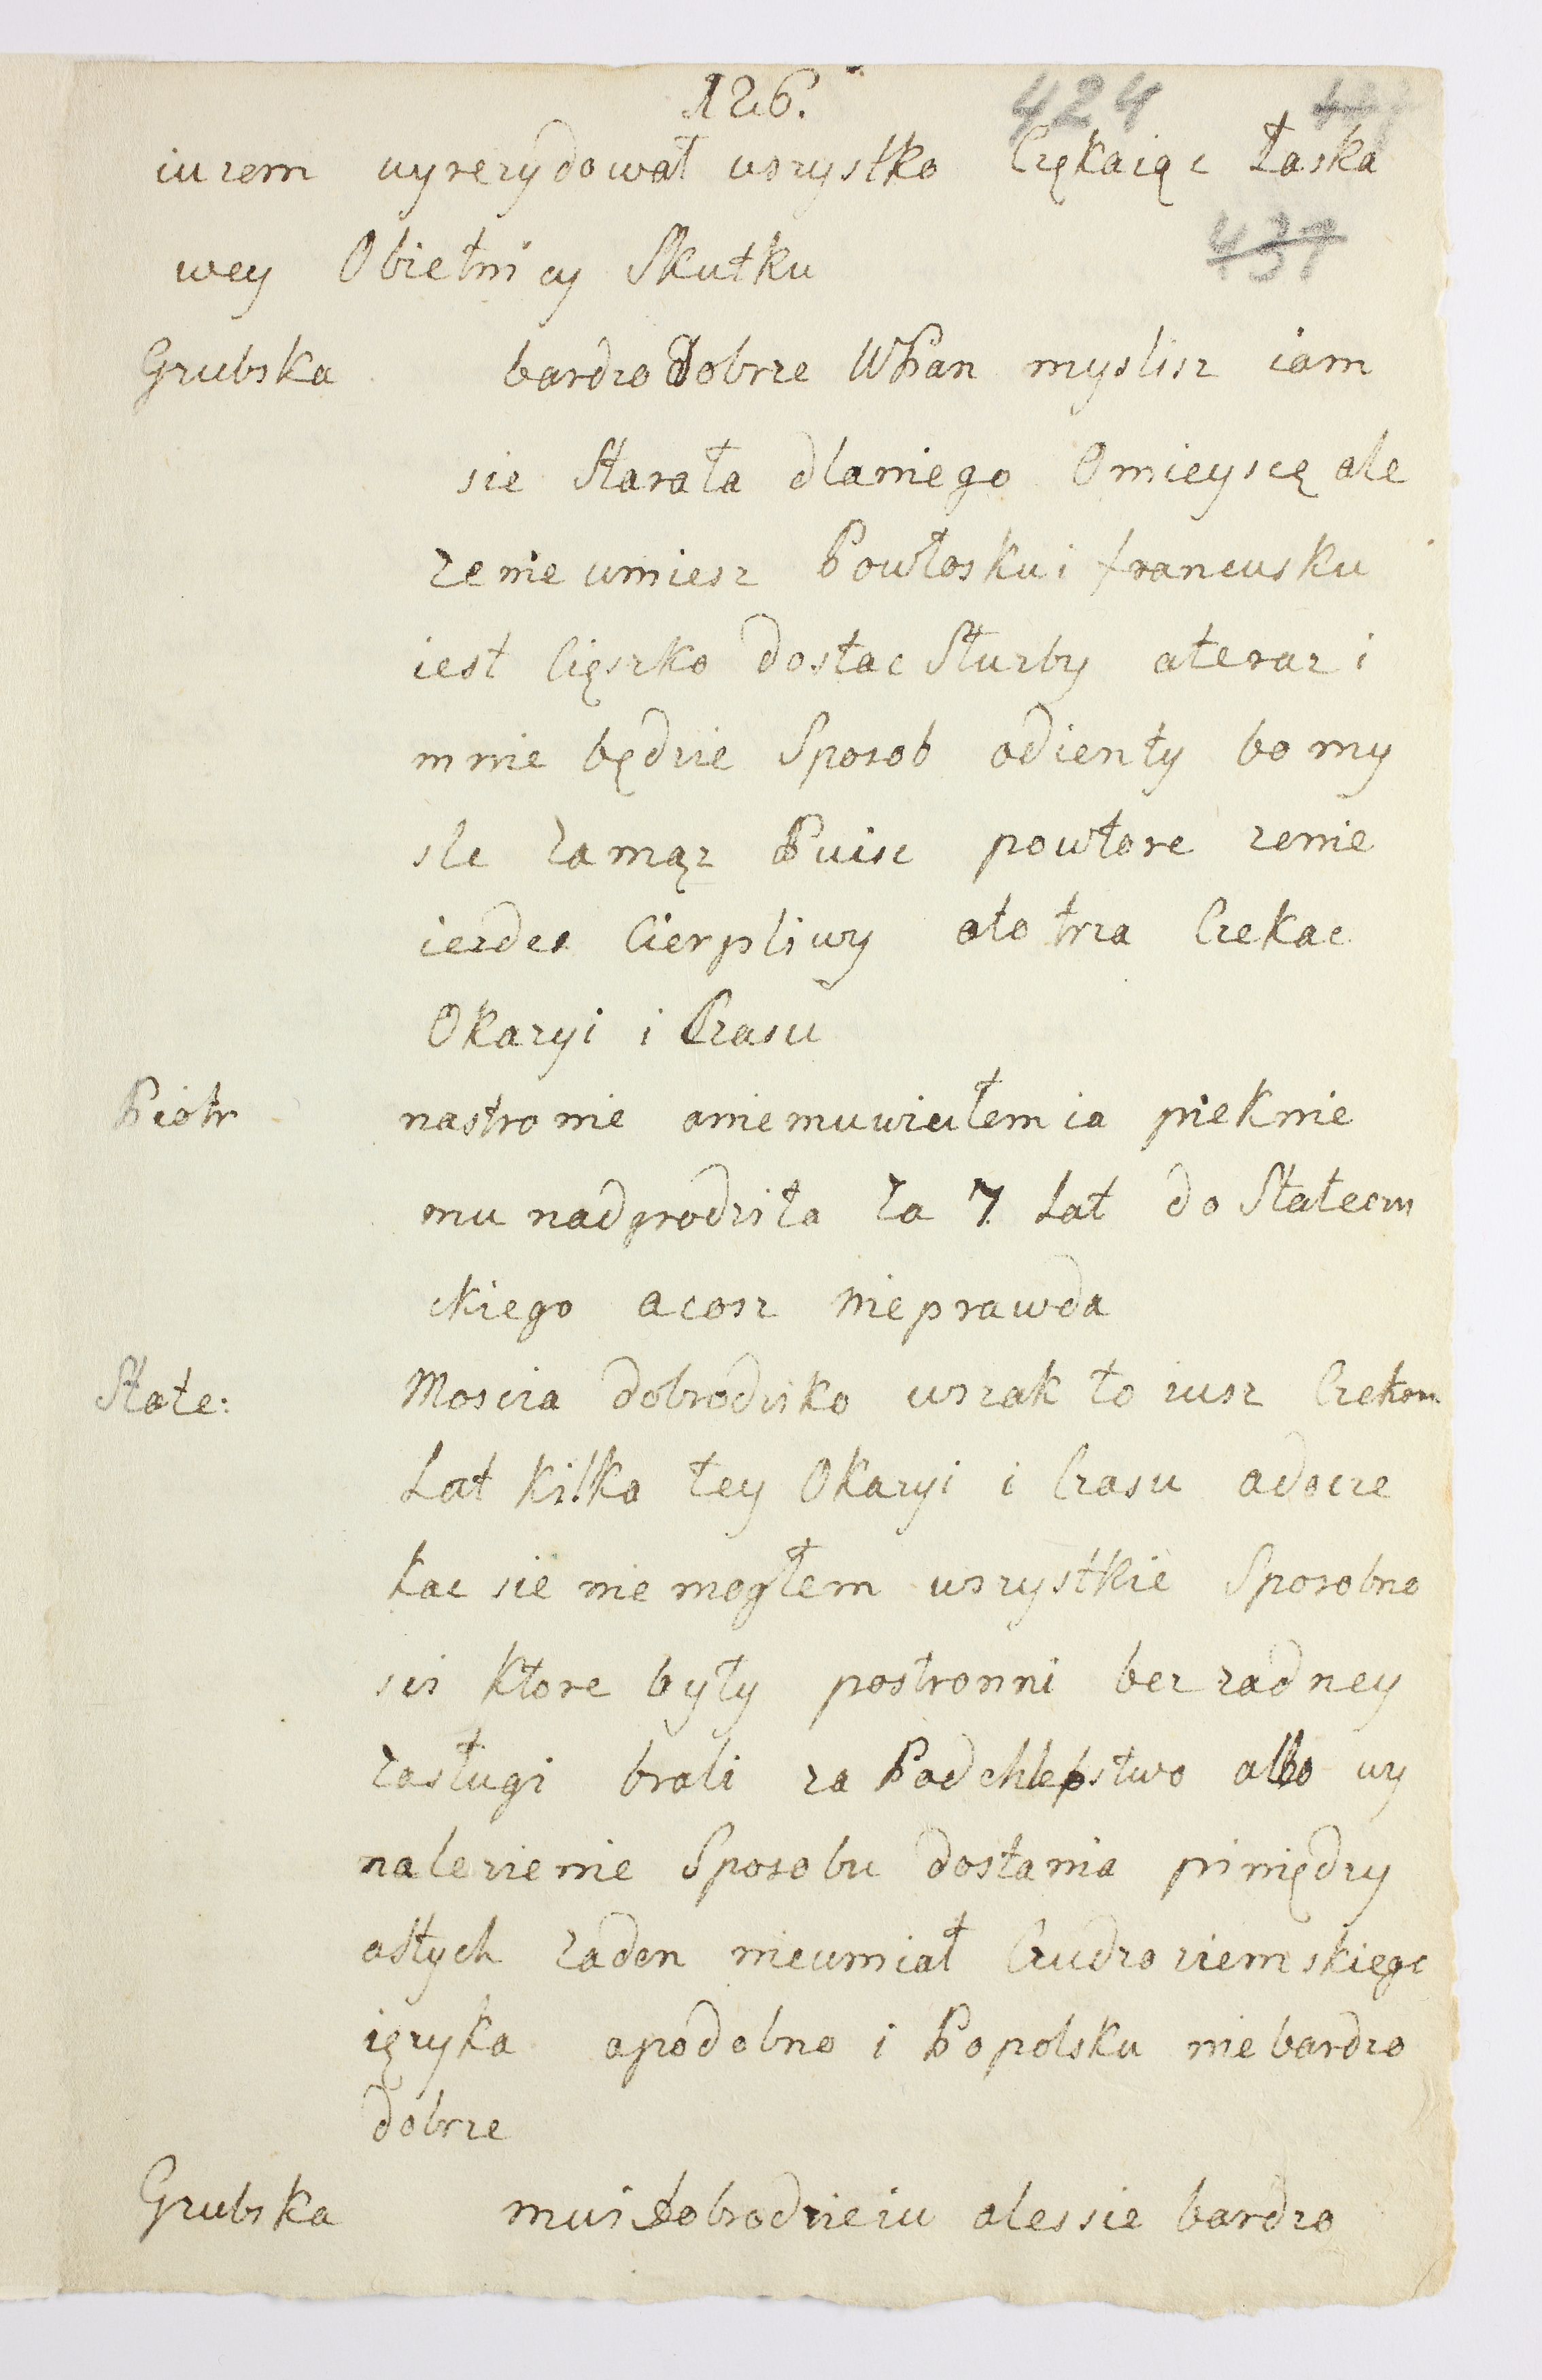 126.
424
437
iuzem wyrezydował wszystko Czękaiąc Łaska
wey Obietnicy Skutku
Grubska bardzo dobrze WPan myslisz iam
sie Starała dlaniego Omieyscę ale
zenie umiesz Powłosku i francusku
iest Cięszko dostac Słuzby a teraz i
mnie będzie Sposob odienty bo my
sle zamąz Puisc powtore zenie
iezdes Cierpliwy oto trza Czekac
Okazyi i Czasu
Piotr nastronie aniemuwiułem ia pieknie
mu nadgrodziła za 7 Lat do Statecm
ckiego acosz nieprawda
State: Moscia dobrodziko wszak to iusz Czekam
Lat kilka tey Okazyi i Czasu adocze
kac sie nie mogłem wszystkie Sposobno
sis Ktore były postronni bez zadney
Zasługi brali za Podchlepstwo albo wy
nalezienie Sposobu dostania piniędzy
astych zaden nieumiał Cudzoziemskiego
ięzyka apodobno i Popolsku niebardzo
dobrze
Grubska musi dobrodzieiu alessie bardzo